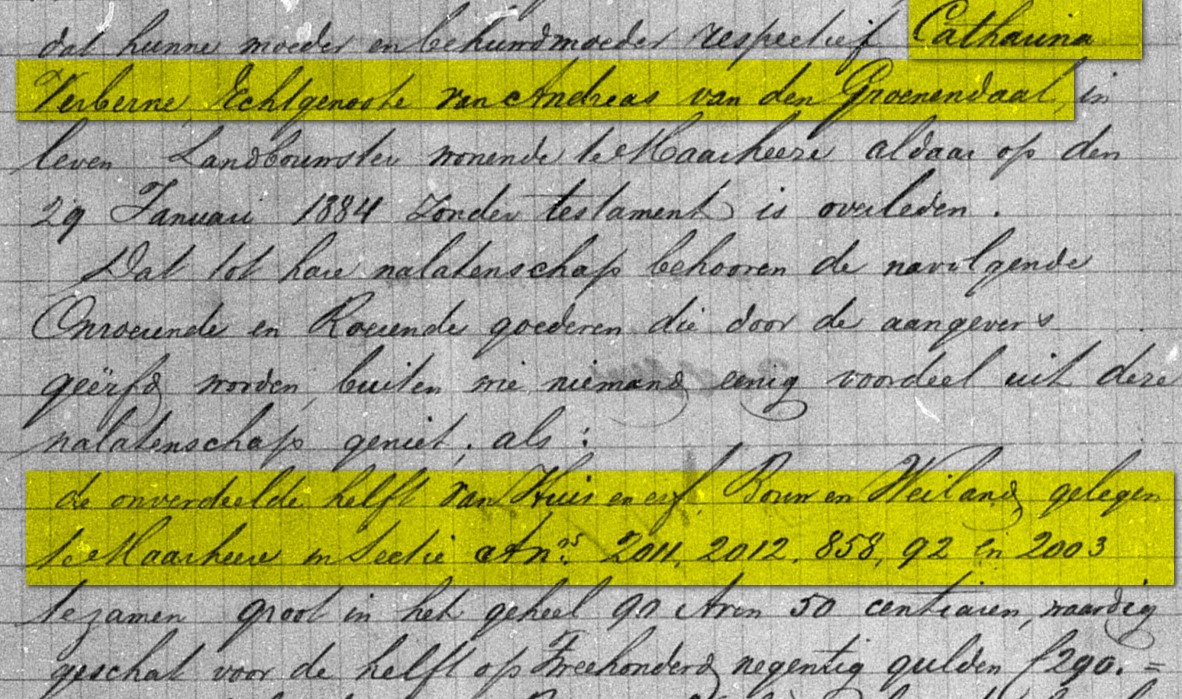 dat hunne moeder en behuwdmoeder respectief Catharina
Verberne, Echtgenoote van Andreas van den Groenendaal, in
leven Landbouwster wonende te Maarheeze aldaar op den
29 Januari 1884 zonder testament is overleden.
Dat tot hare nalatenschap behooren de navolgende
Onroerende en Roerende goederen die door de aangevers
geërfd worden, buiten wie niemand eenig voordeel uit deze
nalatenschap geniet; als:
de onverdeelde helft van Huis en erf, Bouw en Weiland, gelegen
te Maarheeze in Sectie A nos. 2011, 2012, 858, 92 en 2003
tezamen groot in het geheel 90 Aren 50 centiaren, waardig
geschat voor de helft op Tweehonderd negentig gulden f290.=